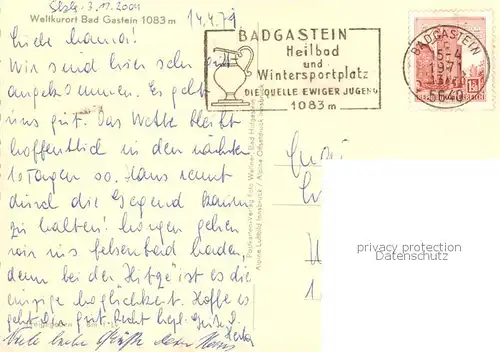 Salzbg. 3.11.2001
Weltkurort Bad Gastein 1083 m
14.4.71
Liebe Mama!
Wir sind hier sehr gut
angekommen. Es geht
uns gut. Das Wetter bleibt
hoffentlich in den nächsten
10 Tagen so. Hans rennt
durch die Gegend kaum
zu halten! Morgen gehen
wir ins Felsenbad baden,
denn bei der Hitze ist es die
einzige Möglichkeit. Hoffe es
geht Dir gut. Recht herzl. Grüße D.
Herta
Viele liebe Grüße Dein Hans
BADGASTEIN
Heilbad
und
Wintersportplatz
DIE QUELLE EWIGER JUGEND
1083 m
BADGASTEIN
15-4
1971
5640
Alpine Luftbild Innsbruck / Alpine Offsetdruck Innsbruck
privacy protection
Datenschutz